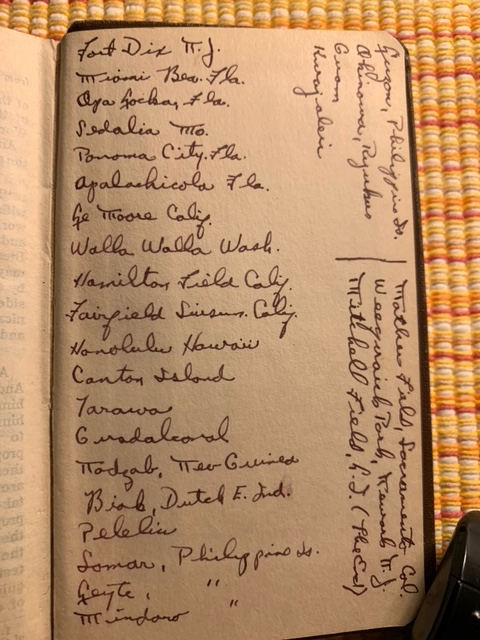 Fort Dix N.J.
Miami Bea. Fla.
Opa Locka, Fla.
Sedalia Mo.
Panama City. Fla.
Apalachicola Fla.
Le Moore Calif.
Walla Walla Wash.
Hamilton Field Calif.
Fairfield Suisun. Calif.
Honolulu Hawaii
Canton Island
Tarawa
Guadalcanal
Nadzab, New Guinea
Biak, Dutch E. Ind.
Peleliu
Samar, Philippine Is.
Leyte, "
Mindoro "
Luzon, Philippine Is.
Okinawa, Ryukus
Guam
Kwajalein
Mather Field, Sacramento Cal.
Weequaic Park, Newark N.J.
Mitchell Field, L.I. (The End)